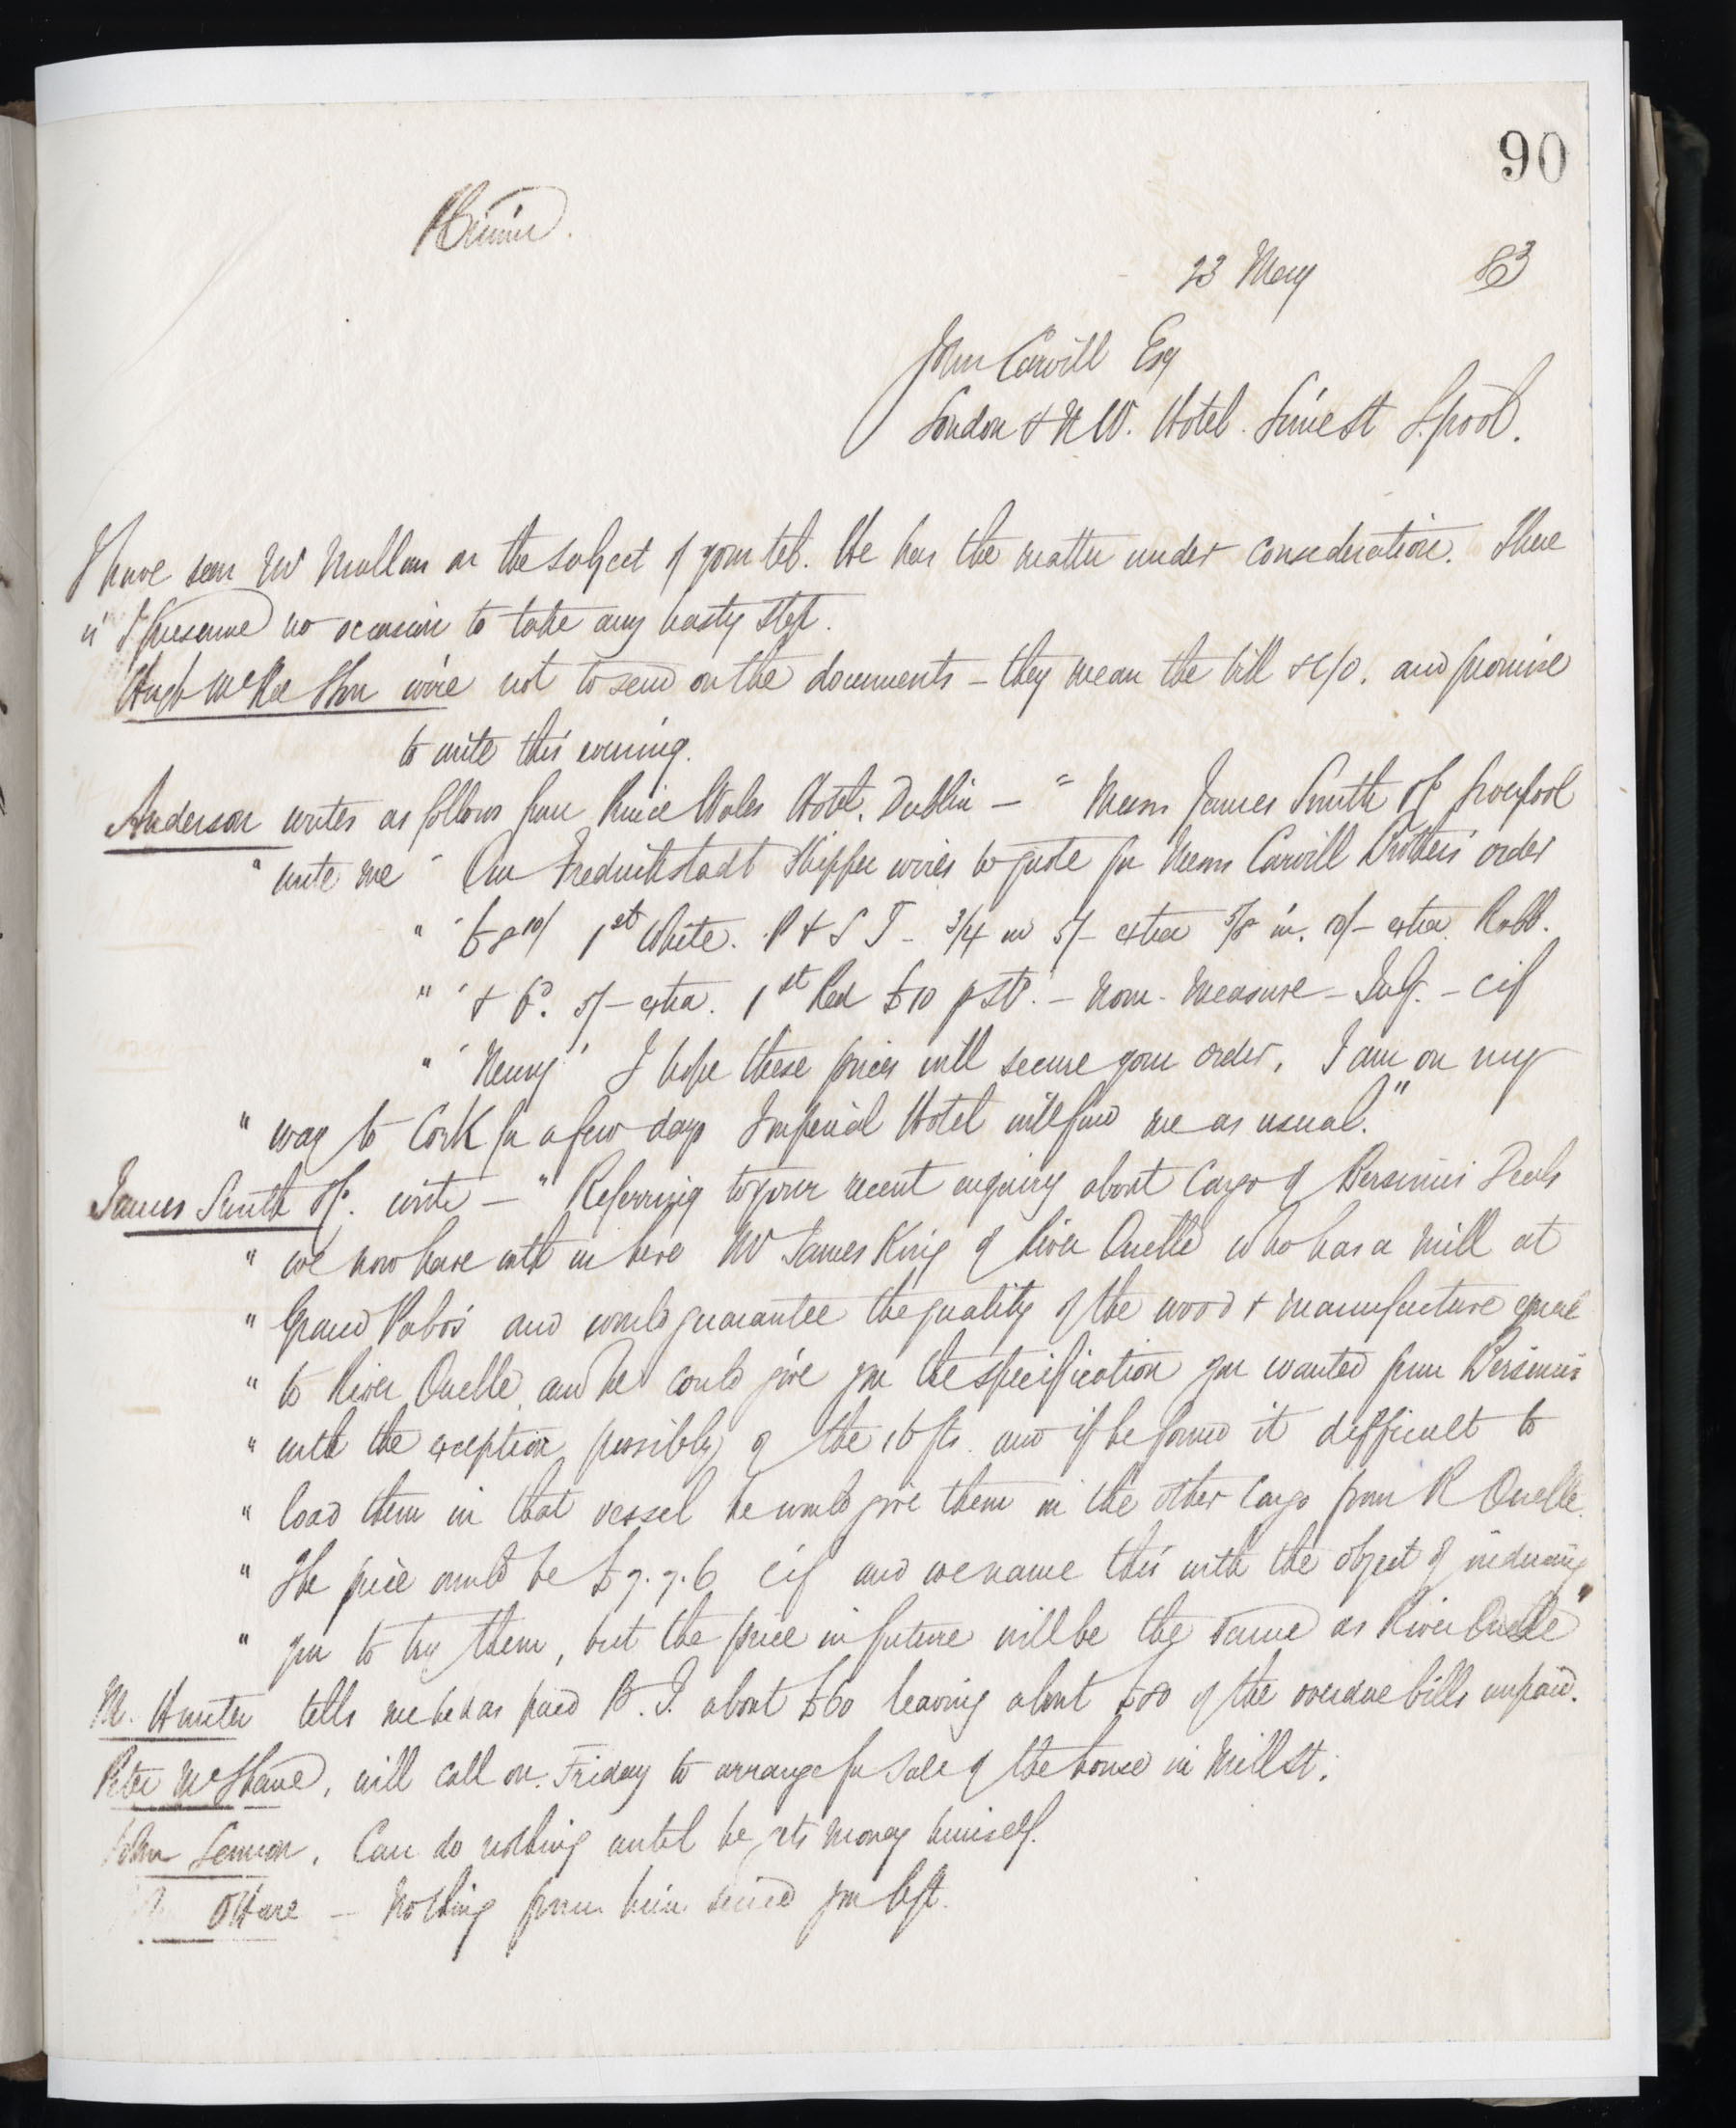 90
23 May 83
John Carvill Esq
London & N W. Hotel. Lime St L.pool.
I have seen Mr Mullan on the subject of your tel. He has the matter under consideration. There
is I presume no occasion to take any hasty step.
Hugh McKee & Son wire not to send on the documents – they mean the bill & c/o. and promise
to write this evening.
Anderson writes as follows from Prince Wales Hotel. Dublin – " Messrs James Smith & Co Liverpool
" write me " Our Fredrikstadt Shipper wires to quote for Messrs Carvill Brothers' order
" " £8 10/ 1st White. P & S J – 3/4 in 5/– extra 5/8 in. 10/– extra.
" " & 5/– extra. 1st Red £10 p Std. – Nom. Measure – July. – cif
" " Newry" I hope these prices will secure your order. I am on my
" way to Cork for a few days Imperial Hotel will find me as usual."
James Smith & Co. write – " Referring to your recent enquiry about Cargo of Bersimis Deals
" we now have with us here Mr James King of River Ouelle who has a mill at
" Grand Pabos and would guarantee the quality of the wood & manufacture equal
" to River Ouelle, and he could give you the specification you wanted from Bersimis
" with the exception possibly of the 16 fts. and if he found it difficult to
" load them in that vessel he would give them in the other Cargo from R Ouelle.
" The price would be £7.7.6 cif and we name this with the object of inducing
" you to try them, but the price in future will be the same as River Ouelle"
M. Hunter tells me he has paid B. I. about £60 leaving about £80 of the overdue bills unpaid.
Peter McShane, will call on Friday to arrange for sale of the house in Mill St.
John Lennon. Can do nothing until he gets money himself.
O'Hare – Nothing from him since you left.